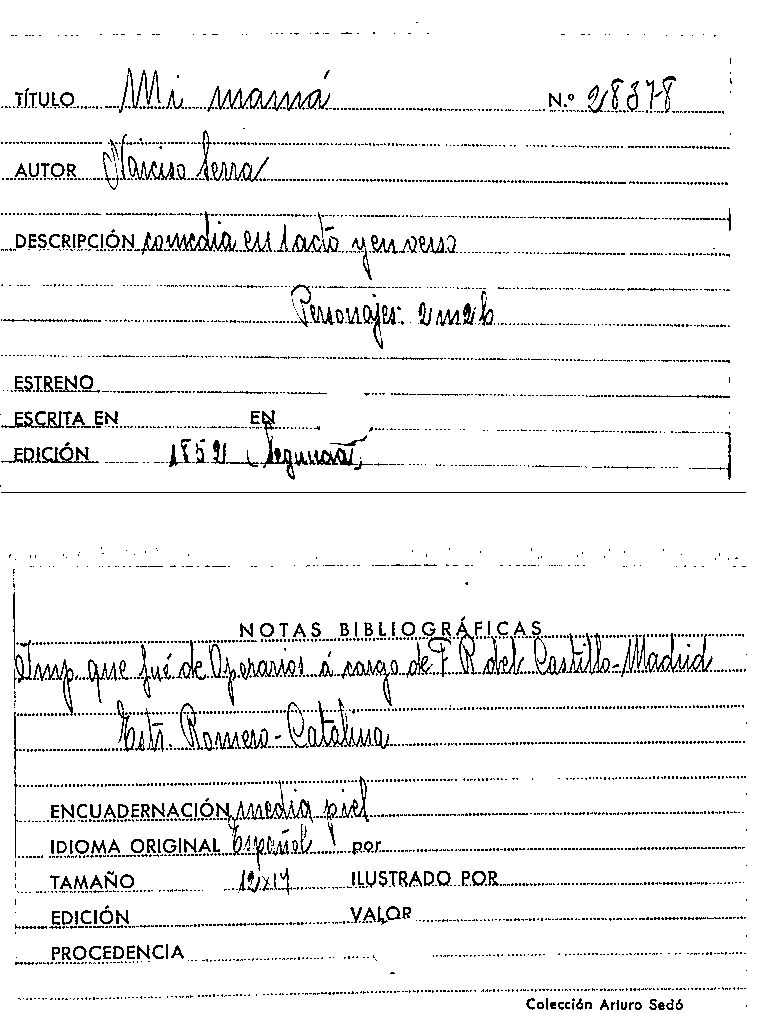 TÍTULO Mi mamá N.º 28378
AUTOR Narciso Serra
DESCRIPCIÓN comedia en 1 acto y en verso
Personajes: 2 m 2 h
ESTRENO
ESCRITA EN EN
EDICIÓN 1852 (Segunda)
NOTAS BIBLIOGRÁFICAS
Imp. que fué de Operarios á cargo de F. R. del Castillo-Madrid
Estr. Romero-Catalina
ENCUADERNACIÓN media piel
IDIOMA ORIGINAL Español por
TAMAÑO 12x17 ILUSTRADO POR
EDICIÓN VALOR
PROCEDENCIA
Colección Arturo Sedó